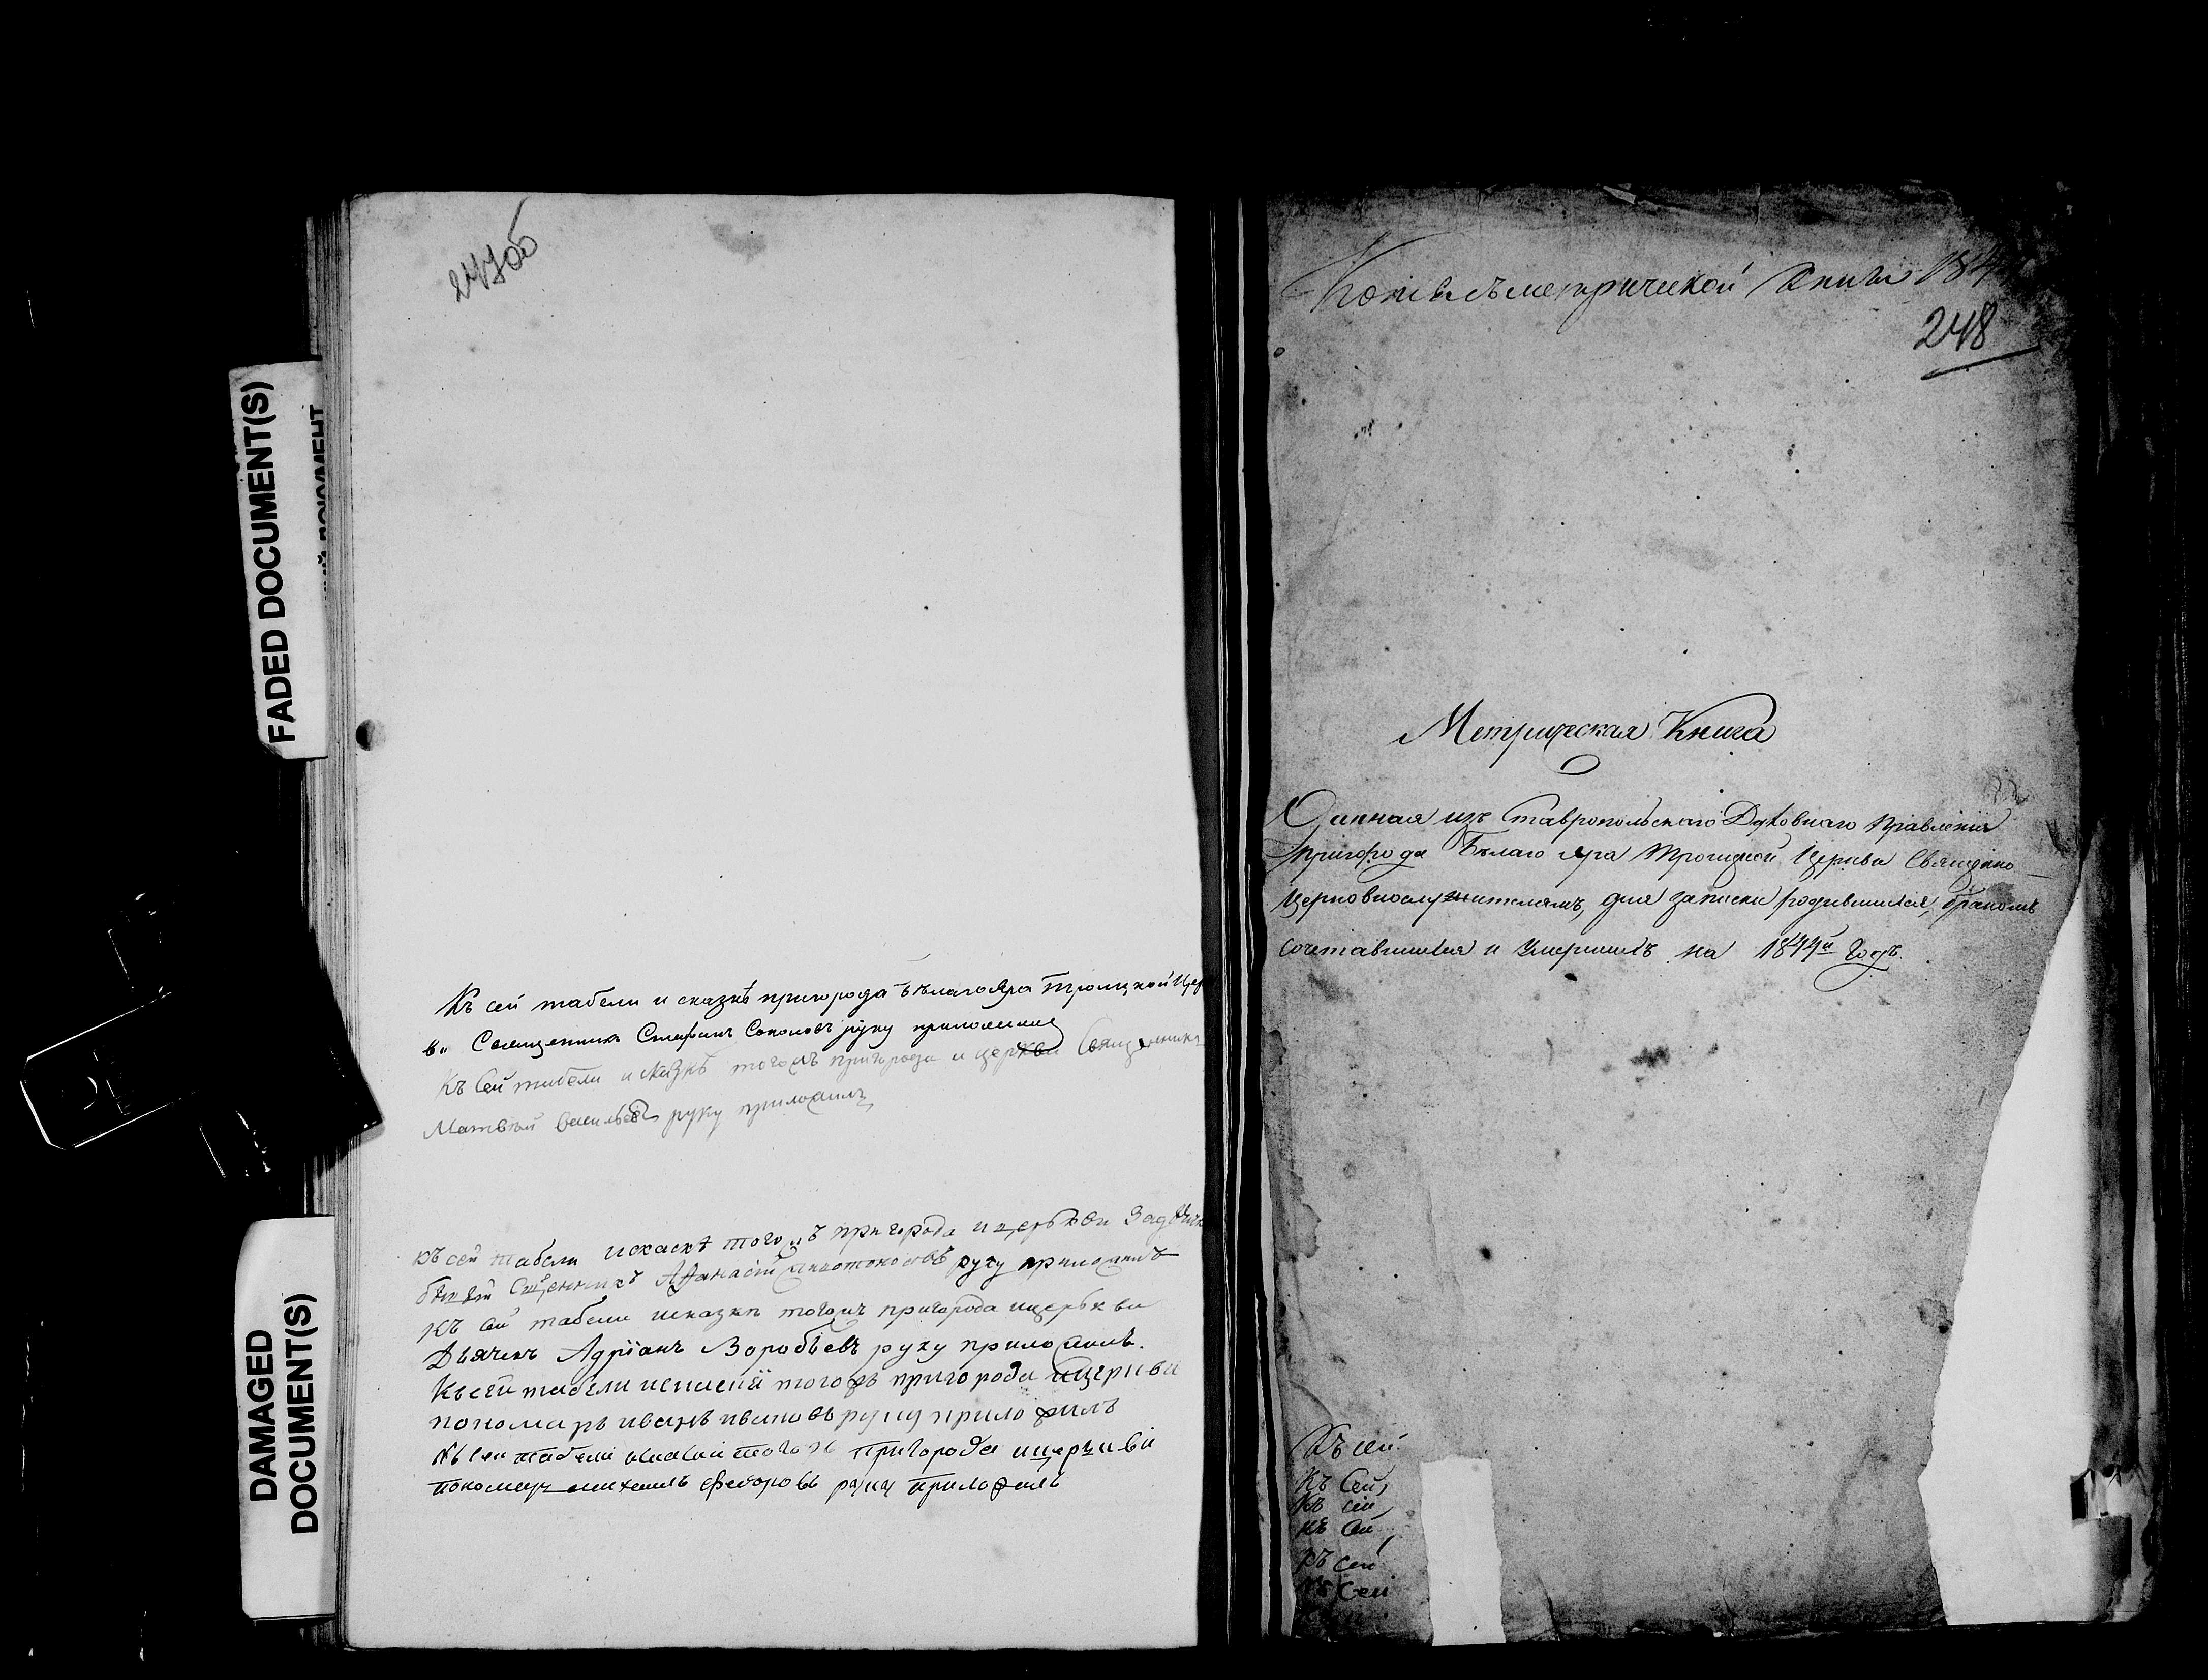 FADED DOCUMENT(S)
DAMAGED
DOCUMENT(S)
247об
Къ сей табели и сказкѣ пригорода Бѣлаго Яра Троицкой Цер
в. Священникъ Стефанъ Соколовъ руку приложилъ
Къ Сей табели и сказкѣ тогожъ пригорода и церкви Священникъ
Матвѣй Васильевъ руку приложилъ
къ сей табели искаскѣ тогожъ пригорода и церькви
Афанасiй руку приложилъ
къ сей табели исказкѣ тогожъ пригорода ицерькви
Дьячекъ Адрiанъ Воробьевъ руку приложилъ.
Къ сей табели тогожъ пригорода ицеркви
пономарь иванъ ивановъ руку приложилъ
Къ сей табели тогожъ пригорода ицеркви
пономарь михаилъ Федоровъ руку приложилъ
Копiя съ метрической Книги 184
248
Метрическая Книга
Данная изъ Ставропольскаго Духовнаго Правленiя
пригорода Бѣлаго Яра Троицкой Церкви Священно
церковнослужителямъ, для записки родившихся, бракомъ
сочетавшихся и Умершихъ на 1844й Годъ.
Къ сей
Къ Сей
Къ сей
къ сей
къ сей
Къ Сей